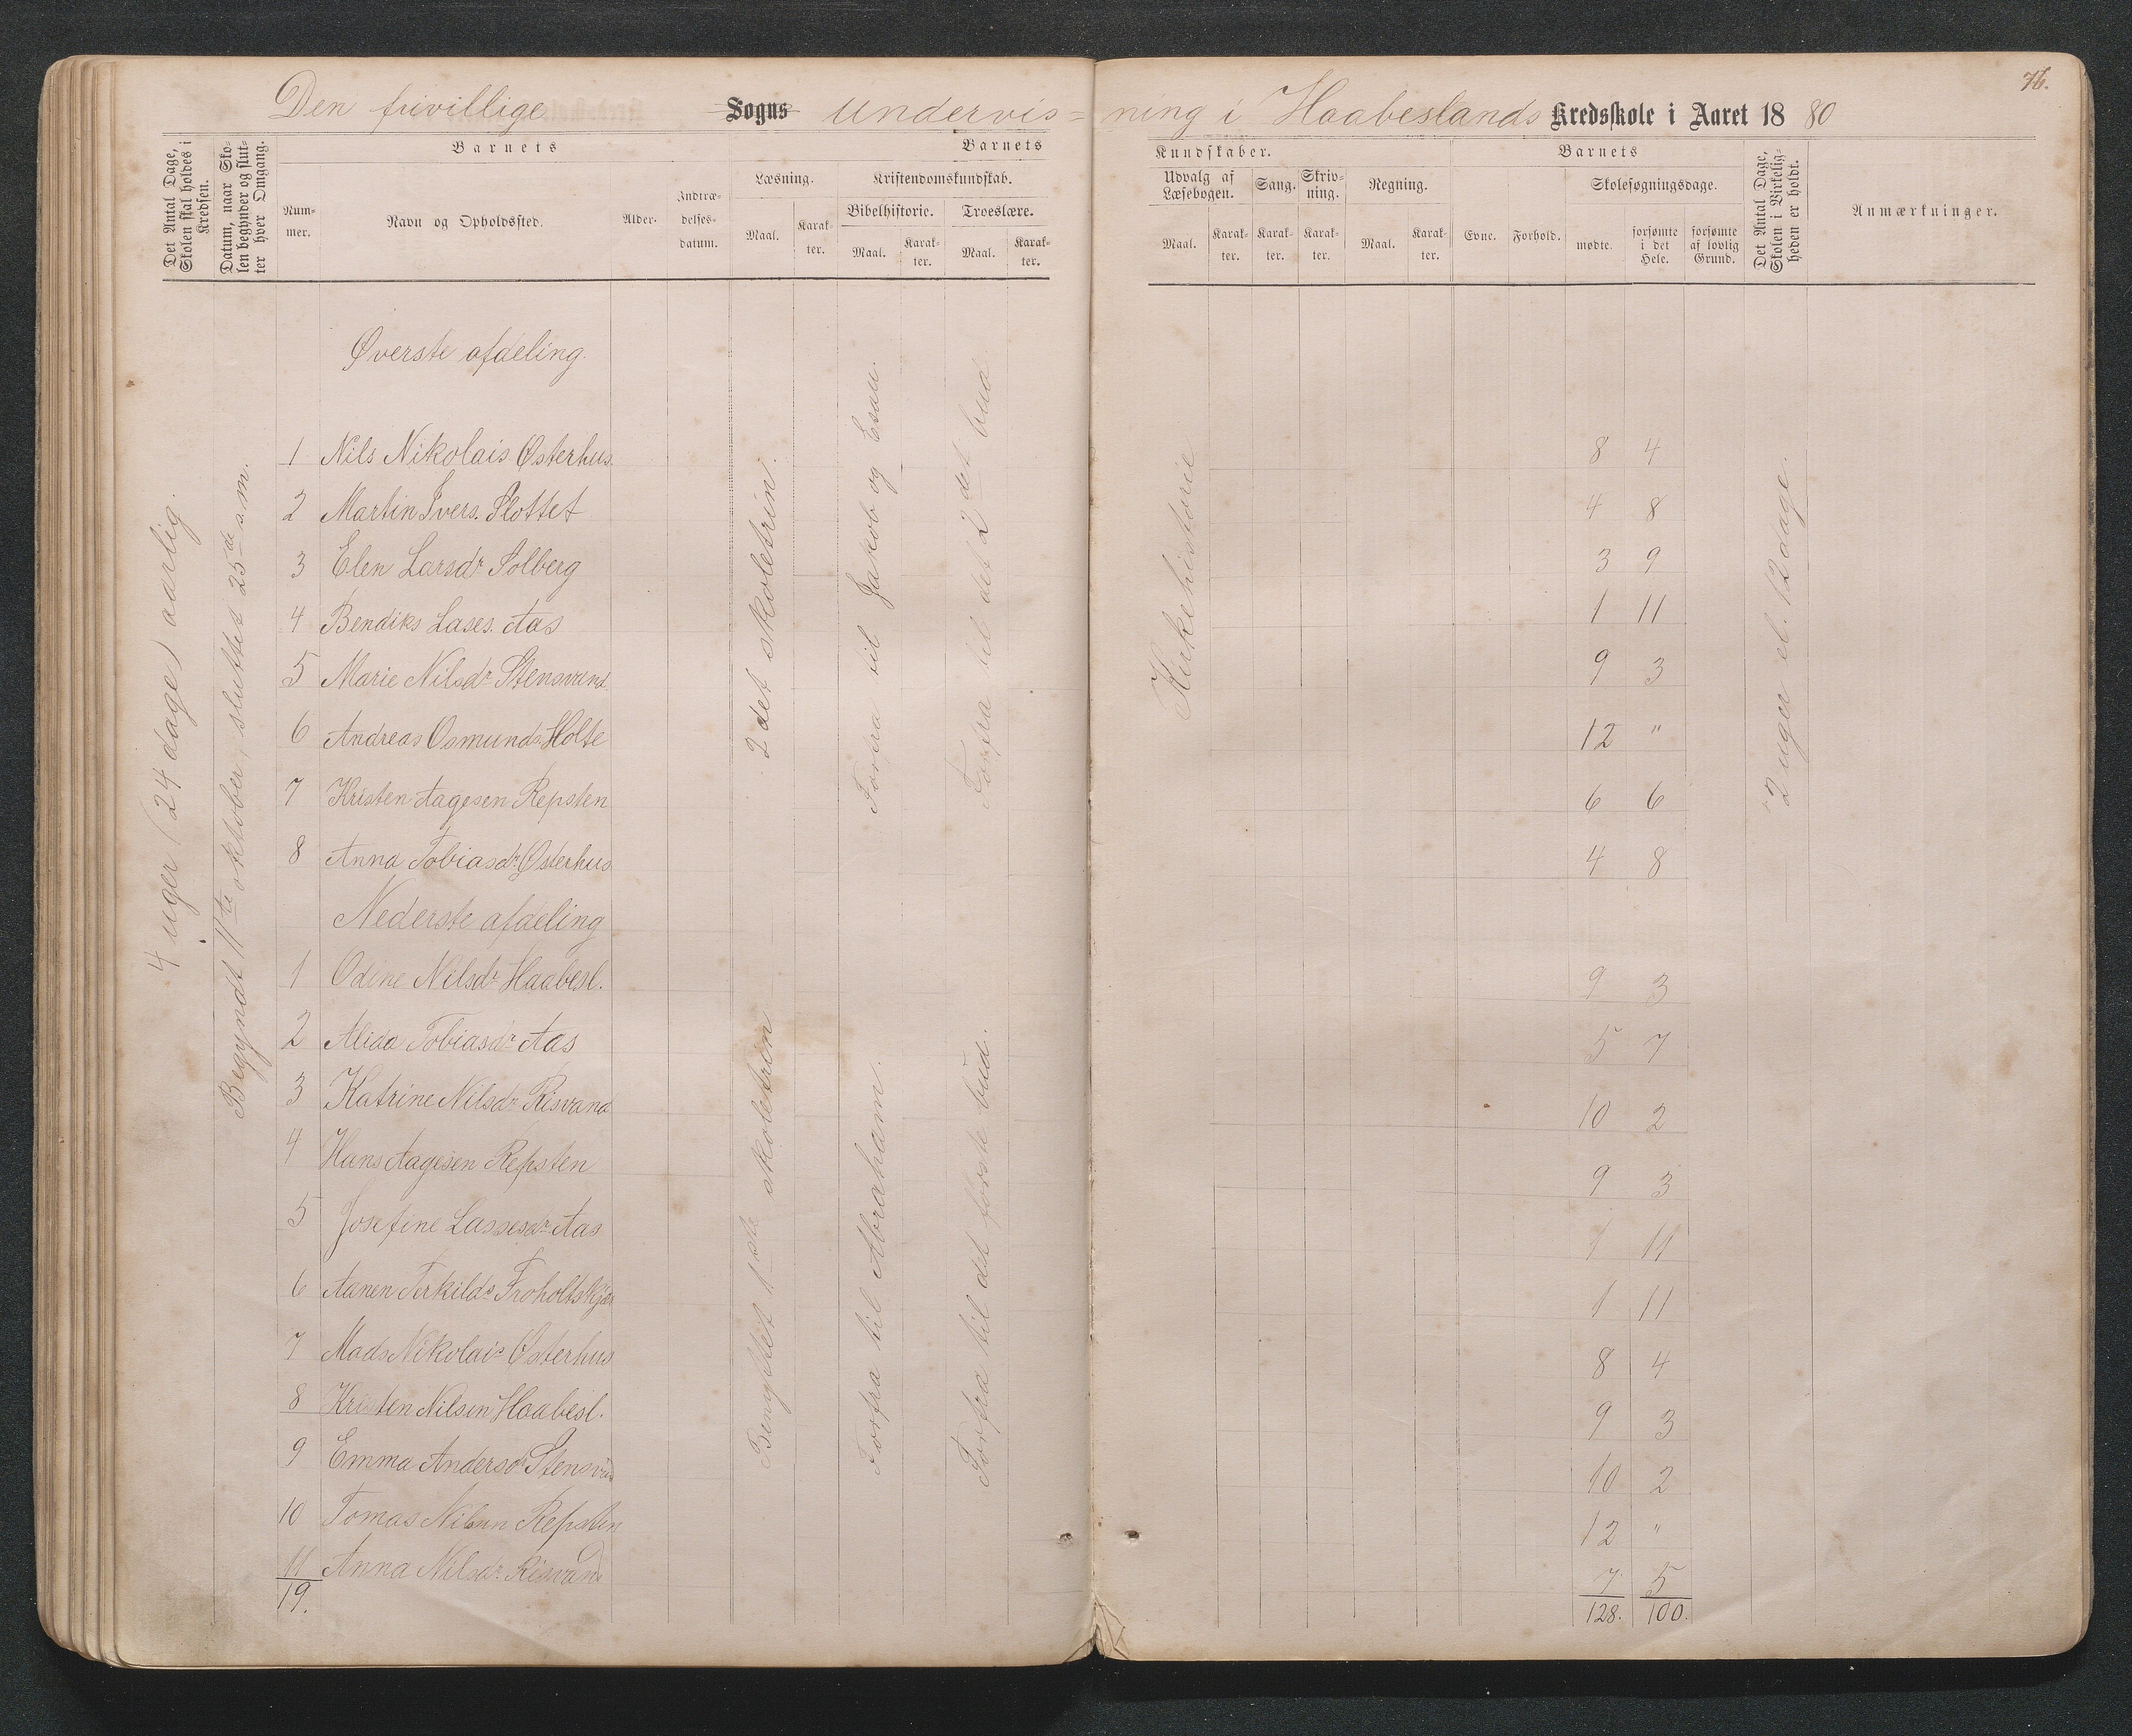 76.
Den frivillige Sogns undervis=ning i Haabeslands Kredsskole i Aaret 1880
Det Antal Dage, Skolen skal holdes i Kredsen.
Datum, naar Skolen begynder og slutter hver Omgang.
Barnets
Nummer.
Navn og Opholdssted.
Alder.
Indtrædelsesdatum.
Barnets
Læsning.
Maal.
Karakter.
Kristendomskundskab.
Bibelhistorie.
Maal.
Karakter.
Troeslære.
Maal.
Karakter.
Kundskaber.
Udvalg af Læsebogen.
Maal.
Karakter.
Sang.
Karakter.
Skrivning.
Karakter.
Regning.
Maal.
Karakter.
Barnets
Evne.
Forhold.
Skolesøgningsdage.
mødte.
forsømte i det Hele.
forsømte af lovlig Grund.
Det Antal Dage, Skolen i Virkeligheden er holdt.
Anmærkninger.
4 uger (24 dage) aarlig.
Begyndt 11te oktober, sluttet 25de s. m.
Øverste afdeling.
2det skoletrin.
Forfra til Jakob og Esau.
Forfra til det 2det bud
Kirkehistorie
2 uger el. 12 dage.
1 Nils Nikolais Østerhus 8 4
2 Martin Ivers. Slottet 4 8
3 Elen Larsdr Solberg 3 9
4 Bendiks Lases. Aas 1 11
5 Marie Nilsdr Stensvand 9 3
6 Andreas Osmunds. Holte 12 "
7 Kristen Aagesen Repsten 6 6
8 Anna Tobiasdr Østerhus 4 8
Nederste afdeling
Benyttet 1ste skoletrin
Forfra til Abraham.
Forfra til det første bud.
1 Odine Nilsdr Haabesl. 9 3
2 Alida Tobiasdr Aas 5 7
3 Katrine Nilsdr Risvand 10 2
4 Hans Aagesen Repsten 9 3
5 Josefine Lassesdr Aas 1 11
6 Aanen Terkilds. Froholtskjær 1 11
7 Mads Nikolais Østerhus 8 4
8 Kristen Nilsen Haabesl. 9 3
9 Emma Andersdr Stensva 10 2
10 Tomas Nilsen Repsten 12 "
11 Anna Nilsdr Risvand 7 5
19. 128. 100.